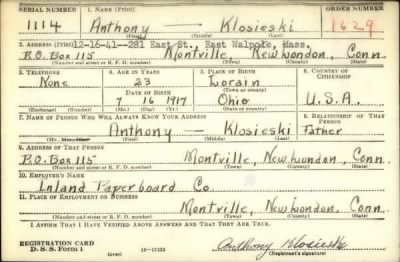 SERIAL NUMBER 1. NAME (Print) ORDER NUMBER
1114 Anthony — Klosieski 1629
(First) (Middle) (Last)
2. ADDRESS (Print) 12-16-41--281 East St., East Walpole, Mass.
P.O. Box 115 Montville, New London, Conn.
(Number and street or R. F. D. number) (Town) (County) (State)
3. TELEPHONE 4. AGE IN YEARS 5. PLACE OF BIRTH 6. COUNTRY OF CITIZENSHIP
None 23 Lorain
DATE OF BIRTH (Town or county)
7 16 1917 Ohio U.S.A.
(Exchange) (Number) (Mo.) (Day) (Yr.) (State or country)
7. NAME OF PERSON WHO WILL ALWAYS KNOW YOUR ADDRESS 8. RELATIONSHIP OF THAT PERSON
Anthony — Klosieski Father
(First) (Middle) (Last)
9. ADDRESS OF THAT PERSON
P.O. Box 115 Montville, New London, Conn.
(Number and street or R. F. D. number) (Town) (County) (State)
10. EMPLOYER'S NAME
Inland Paperboard Co.
11. PLACE OF EMPLOYMENT OR BUSINESS
Montville, New London, Conn.
(Number and street or R. F. D. number) (Town) (County) (State)
I AFFIRM THAT I HAVE VERIFIED ABOVE ANSWERS AND THAT THEY ARE TRUE.
REGISTRATION CARD
D. S. S. Form 1 (over) Anthony Klosieski
(Registrant's signature)